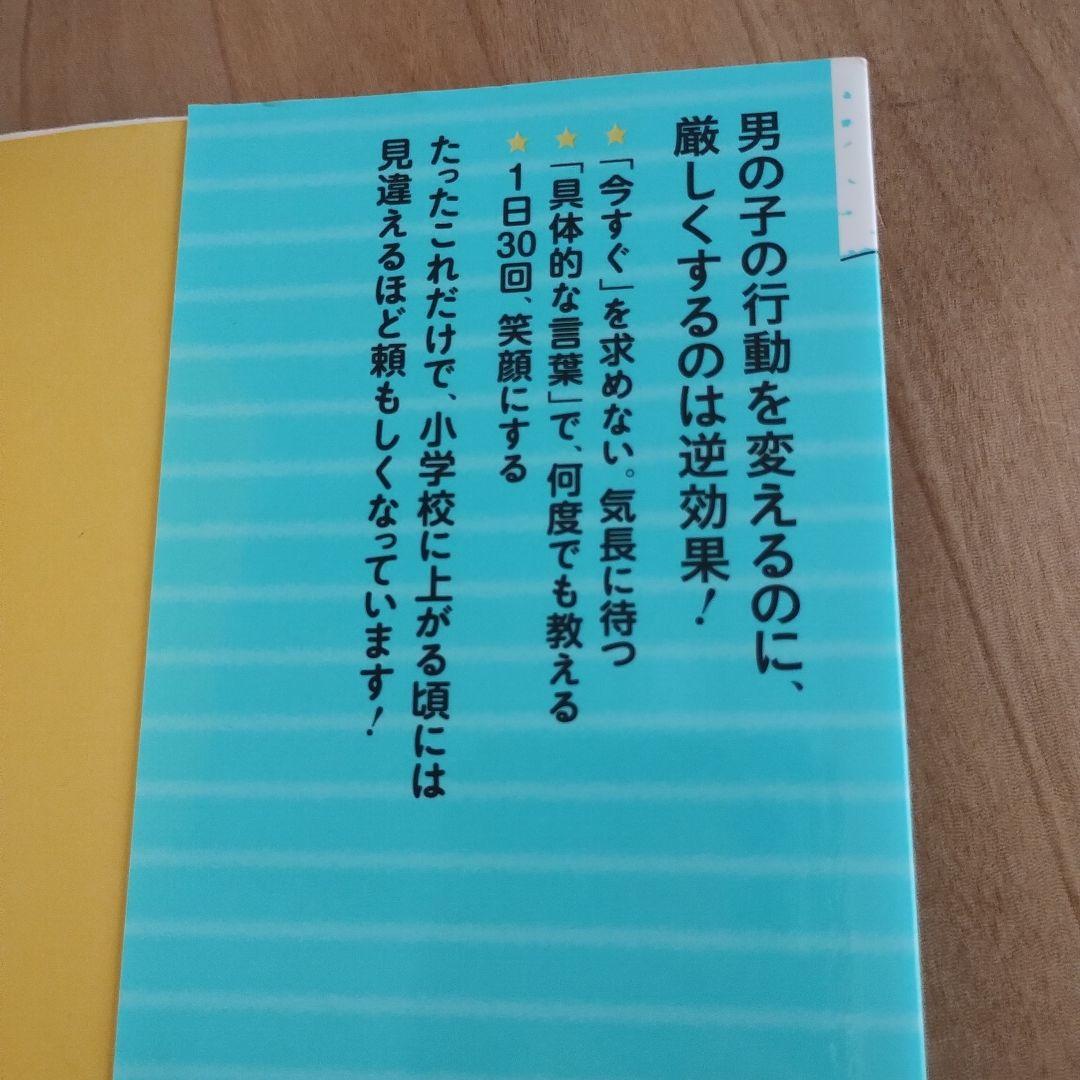 男の子の行動を変えるのに、
厳しくするのは逆効果!
「今すぐ」を求めない。気長に待つ
「具体的な言葉」で、何度でも教える
1日30回、笑顔にする
たったこれだけで、小学校に上がる頃には
見違えるほど頼もしくなっています!